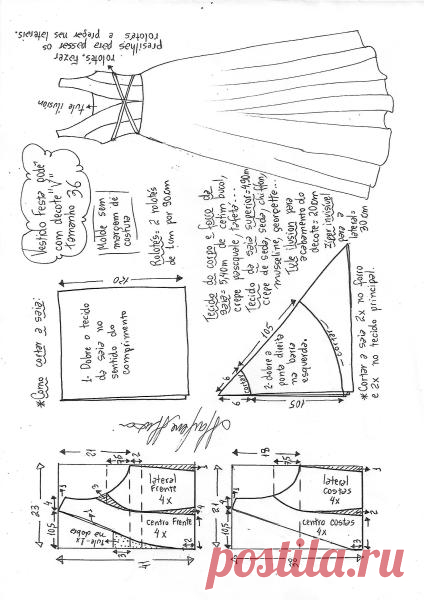 presilhas para passar os
rolotês. Fazer
rolotês e pregar nas laterais.
tule ilusion
Vestido Festa
com decote "V"
Tamanho 36
Molde sem
margem de
costura
Rolotês: 2 rolotês
de 1cm por 90cm
Tecido do corpo e forro da
saia = 5,40m de cetim bucol,
crepe pasquale, tafetá...
Tecido da saia superior = 4,90m
crepe de seda, seda, chiffon,
musseline, georgette...
Tule ilusion para
acabamento do
decote = 20cm
Zíper invisível
para a
lateral=
30cm
*Como cortar a saia:
120
1. Dobre o tecido
da saia no
sentido do
comprimento
105
6
6
cortar
2. dobre a
ponta direita
na barra
esquerda.
cortar
105
*Cortar a saia 2x no forro
e 2x no tecido principal.
21
7,5
2
3
1
23
4
3
3
lateral
Frente
4x
4
10,5
centro Frente
4x
tule-1x
na dobra
3
2
41
18
7,5
1
4
lateral
costas
4x
10,5
centro costas
4x
3
postila.ru